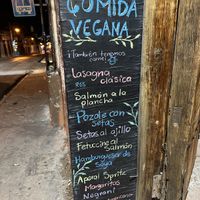 COMIDA
VEGANA
¡También tenemos
carne!
Lasagna
clásica
Salmón a la
plancha
Pozole con
setas
Setas al ajillo
Fetuccine al
salmón
Hamburguesa de
soya
Aperol Spritz
Margaritas
Negroni